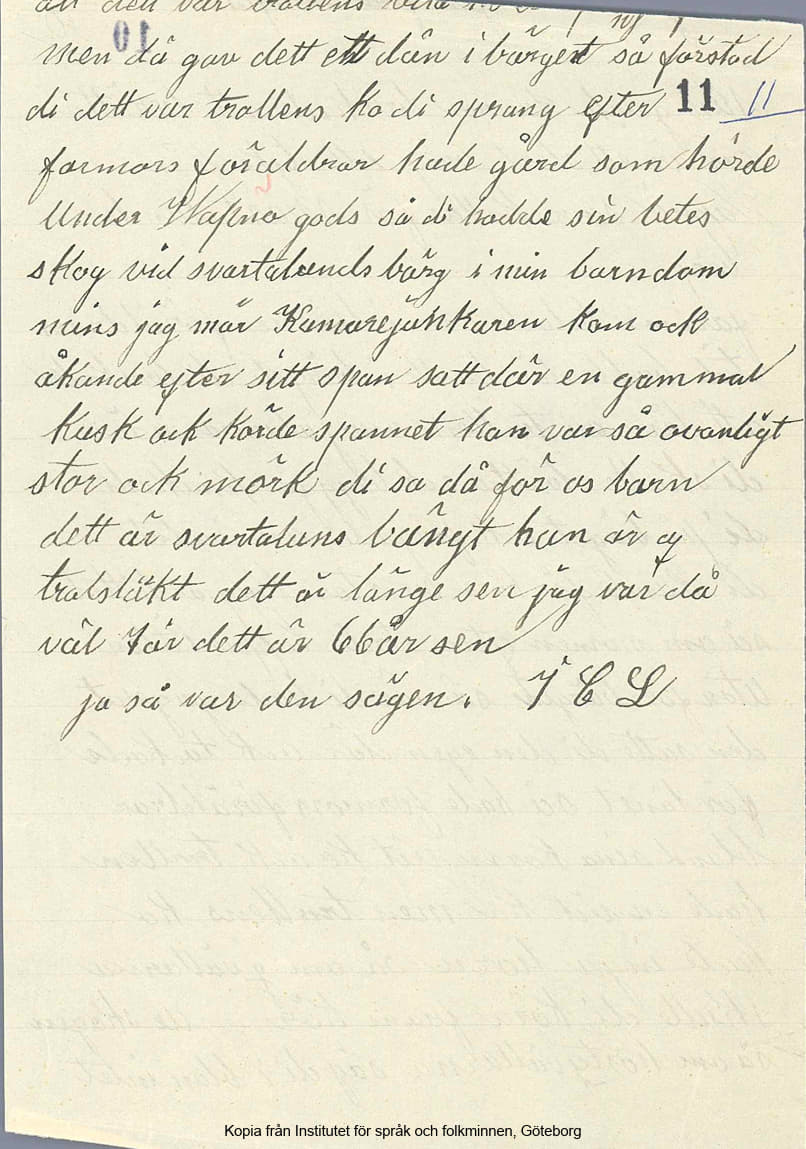 att dett var trollens
10
men då gav dett ett dån i bärget så förstod
di dett var trollens ko di sprang efter 11 11
farmors föräldrar hade gård som hörde
Under Wapnö gods så di hadde sin betes
skog vid svartalunds bärg i min barndom
mins jag när Kamarejunkaren kom ock
åkande efter sitt span satt där en gammal
kusk ock körde spannet han var så ovanligt
stor ock mörk di sa då för os barn
dett är svartaluns bängt han är af
trolsläkt dett är länge sen jag var då
väl 7 år dett är 66 år sen
ja så var den sägen. J C L
Kopia från Institutet för språk och folkminnen, Göteborg